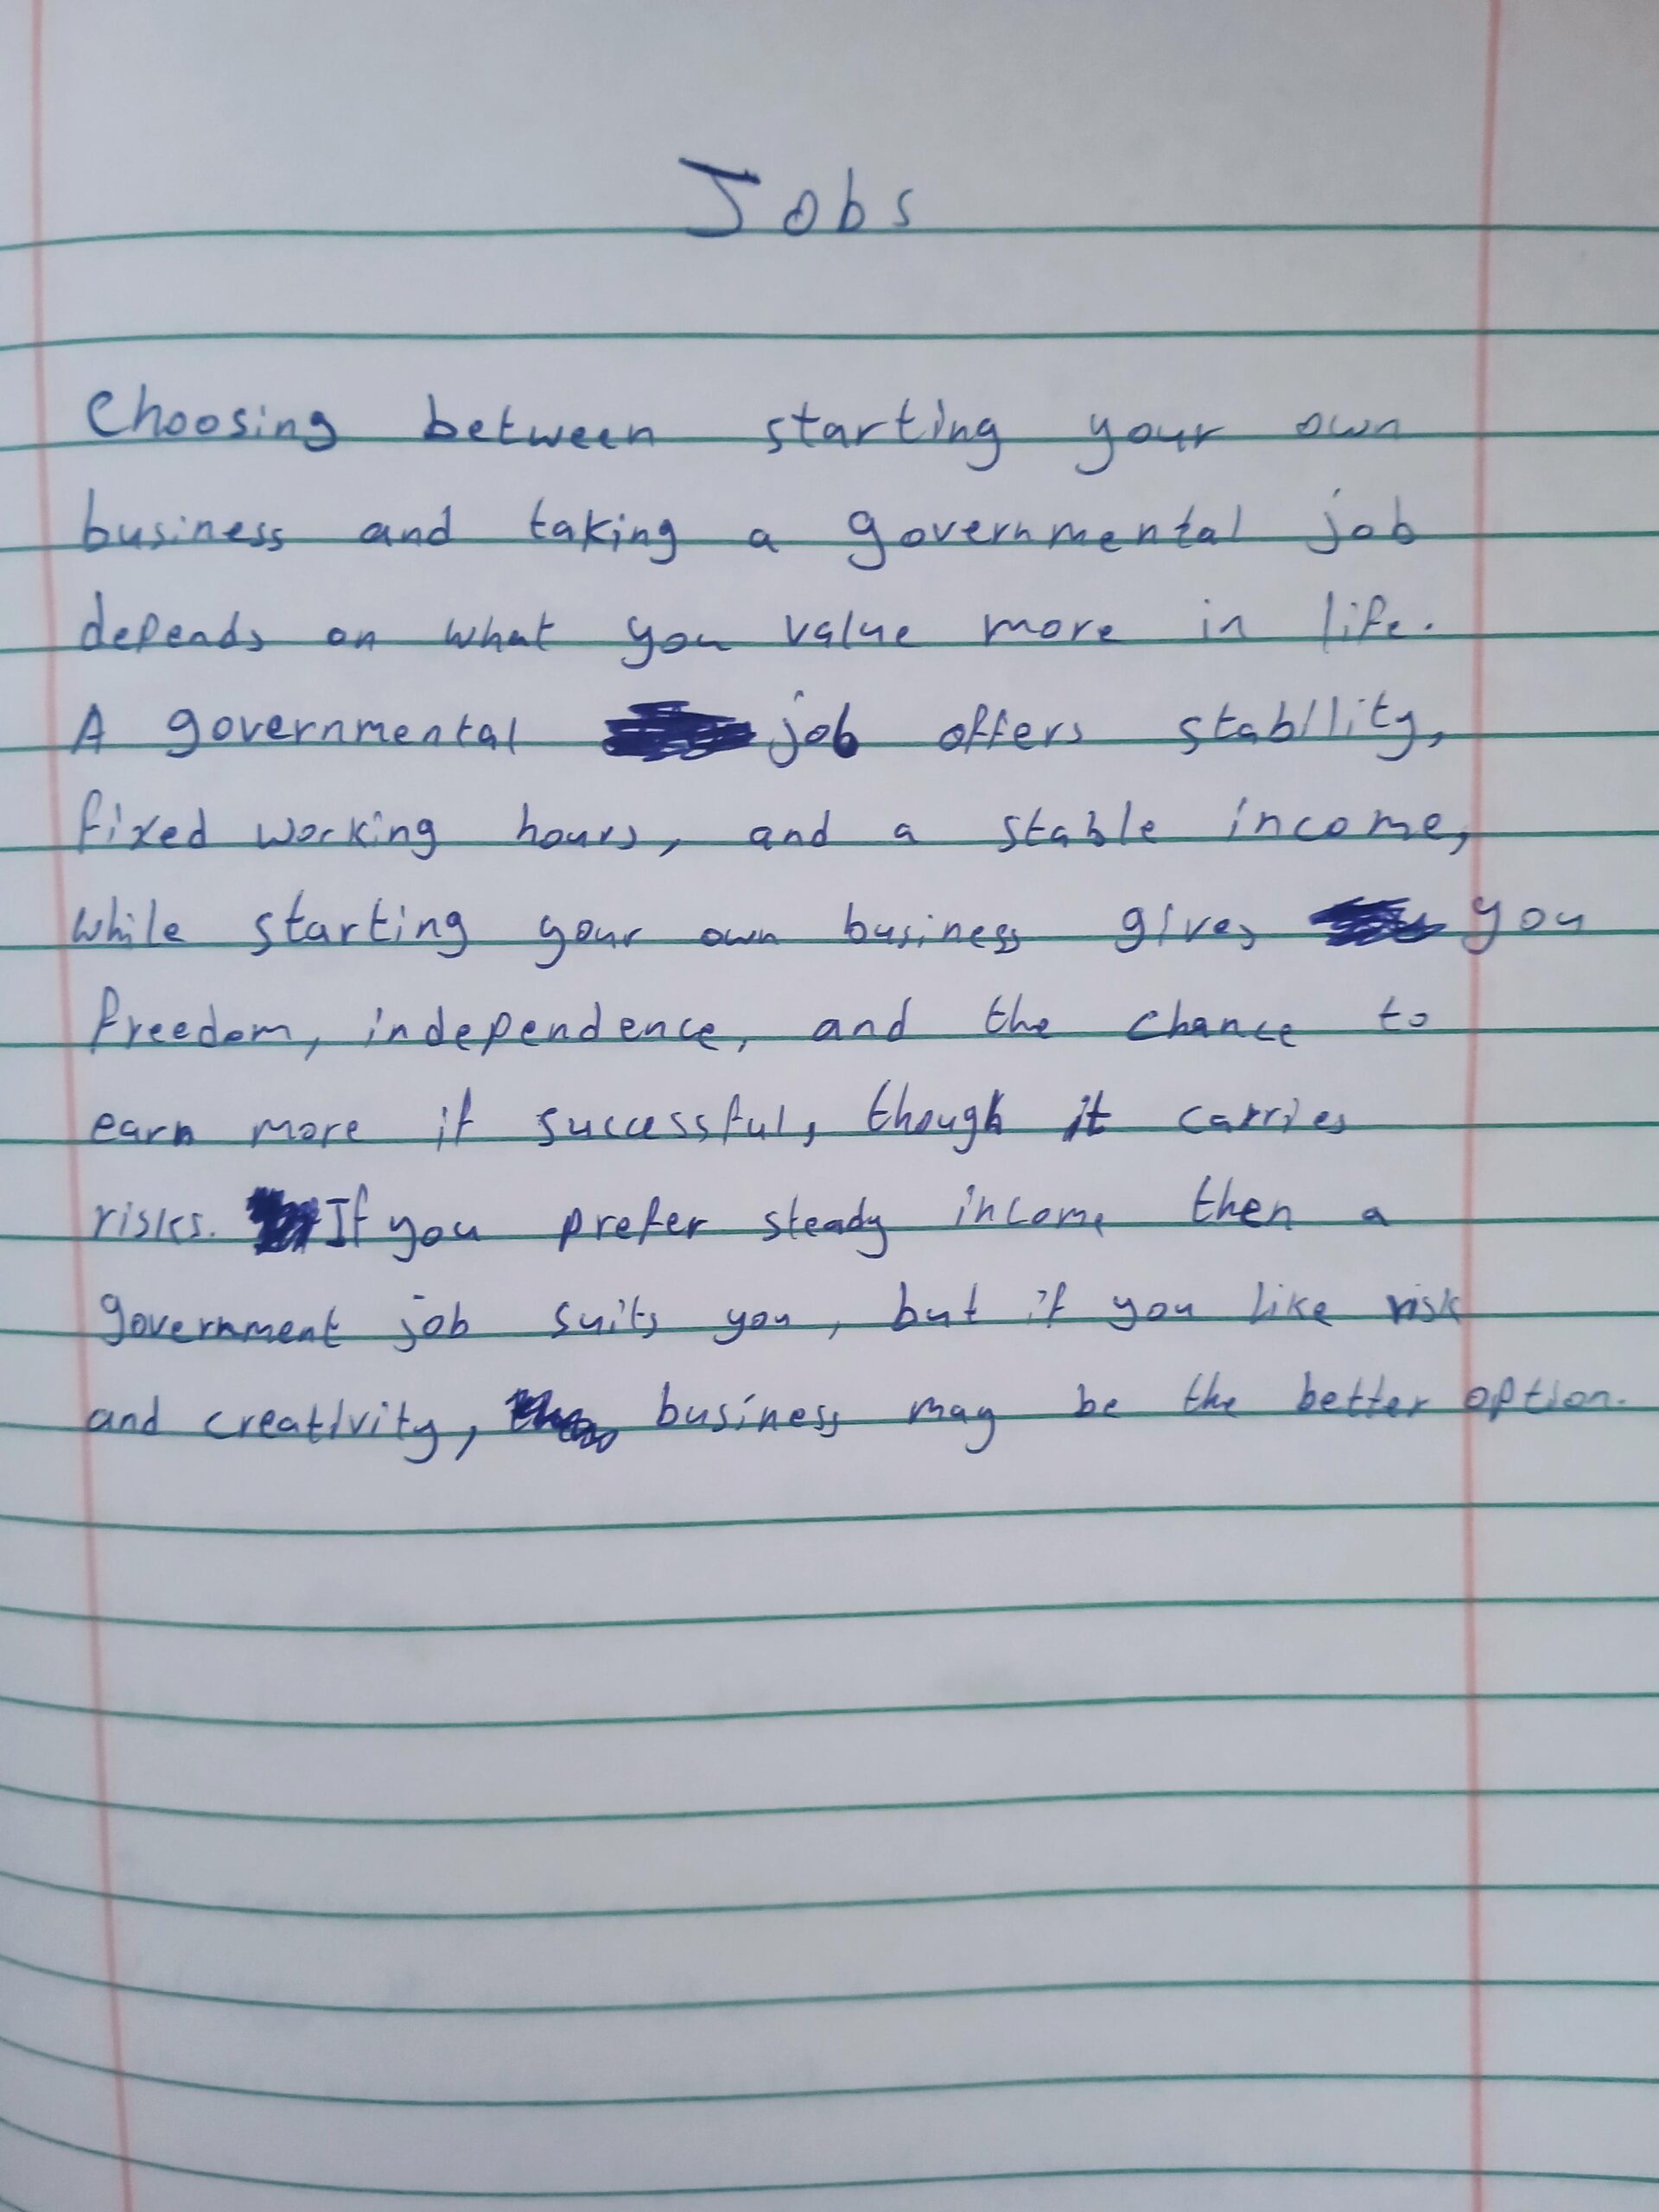 Jobs
Choosing between starting your own
business and taking a governmental job
depends on what you value more in life.
A governmental job offers stability,
fixed working hours, and a stable income,
while starting your own business gives you
freedom, independence, and the chance to
earn more if successful, though it carries
risks. If you prefer steady income then a
government job suits you, but if you like risk
and creativity, business may be the better option.